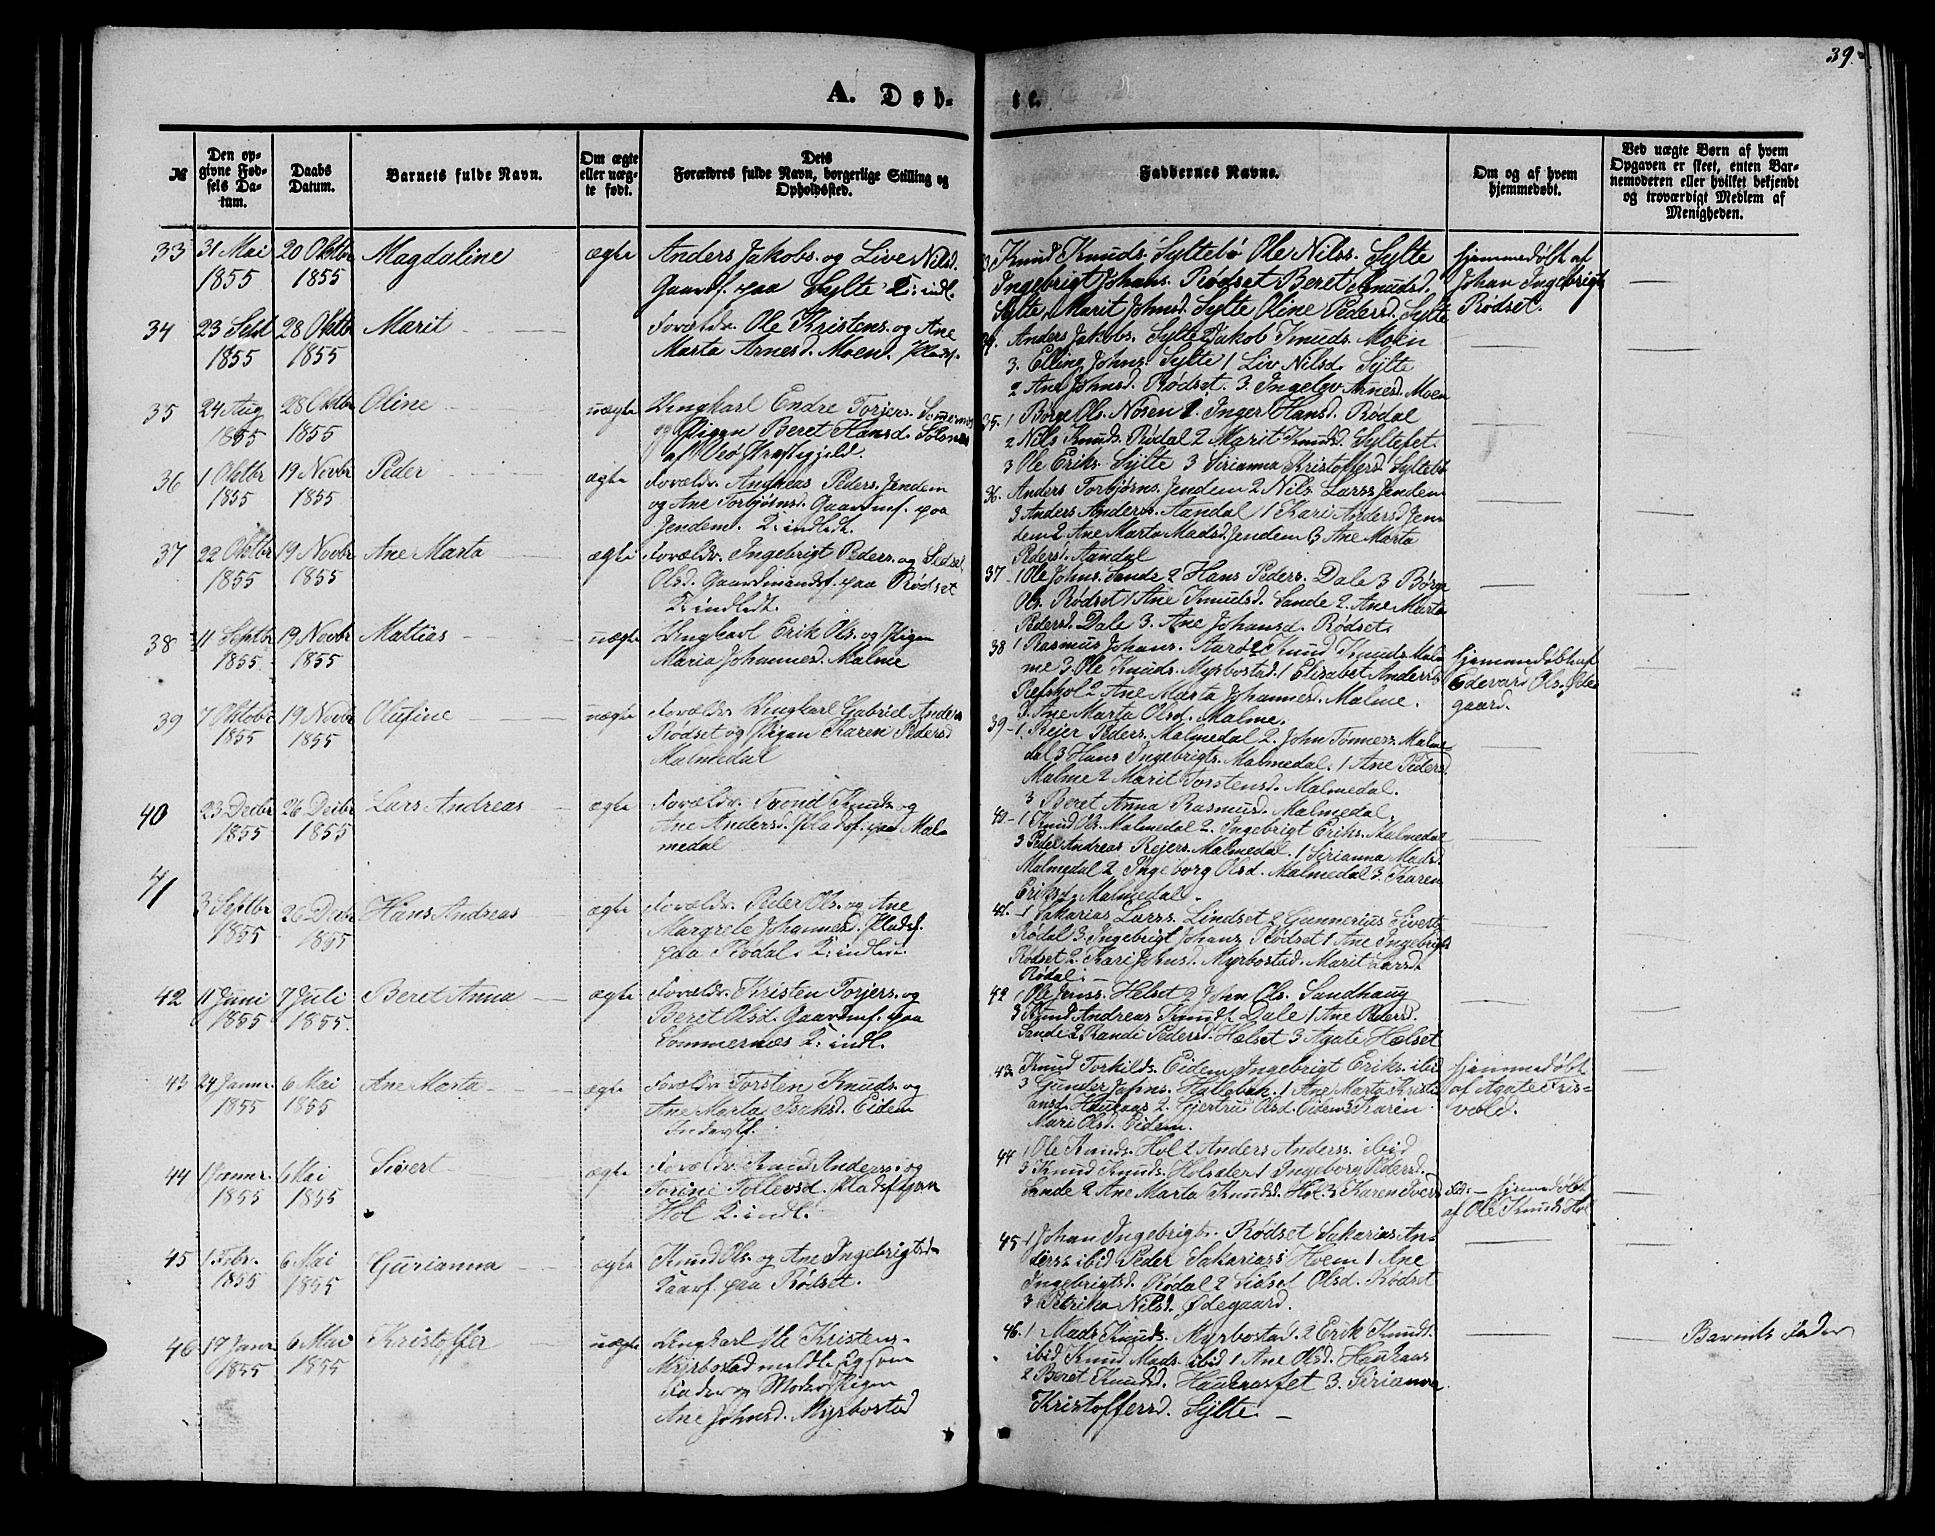 39.
A. Døb-
te.
№
Den op-
givne Fød-
sels Da-
tum.
Daabs
Datum.
Barnets fulde Navn.
Om ægte
eller uæg-
te født.
Dets
Forældres fulde Navn, borgerlige Stilling og
Opholdssted.
Faddernes Navne.
Om og af hvem
hjemmedøbt.
Ved uægte Børn af hvem
Opgaven er skeet, enten Bar-
nemoderen eller hvilket bekjendt
og troværdigt Medlem af
Menigheden.
33 31 Mai 20 Oktbr Magdaline ægte Anders Jakobs. og Live Nilsd.
1855 1855 Gaardf. paa Sylte 2: indl.
Knud Knuds. Syltebø Ole Nilss. Sylte
Ingebrigt Johans. Rødset Beret Knudsd.
Sylte, Marit Johnsd. Sylte Oline Pedersd. Sylte
Hjemmedøbt af
Johan Ingebrigts
Rødset.
34 23 Sept 28 Oktb Marit Forældr. Ole Kristens. og Ane
1855 1855 Marta Arnesd. Moen. Pladsf.
34. Anders Jakobs. Sylte 2 Jakob Knuds. Moen
3. Elling Johns. Sylte 1 Liv Nilsd. Sylte
2 Ane Johnsd. Rødset. 3. Ingelev Arnesd. Moen
35 24 Aug 28 Oktbr Oline uægte Ungkarl Endre Torjers.
1855 1855 og Pigen Beret Hansd. Solsnes
af Veø Præstigjeld.
35. 1 Børge Ols. Nosen 1. Inger Hansd. Rødal
2 Nils Knuds. Rødal 2 Marit Knudsd. Syltefet.
3 Ole Eriks. Sylte 3 Sirianna Kristoffersd. Syltebø
36 1 Oktbr 19 Novbr Peder ægte Forældr. Andreas Peders. Jendem
1855 1855 og Ane Torbjørnsd. Gaardmf. paa
Jendem. 2: indledt.
36. Anders Torbjørns. Jendem 2 Nils Larss Jendem
3 Anders Anderss. Aandal 1 Kari Andersd Jen-
dem 2 Ane Marta Madsd. Jendem 3 Ane Marta
Pedersd. Aandal
37 22 Oktbr 19 Novbr Ane Marta ægte Forældr. Ingebrigt Peders. og Sidsel
1855 1855 Olsd. Gaardmandsf. paa Rødset
2: indledt.
37 1 Ole Johns. Sande 2 Hans Peders. Dale 3 Børge
Ols. Rødset 1 Ane Knudsd. Sande 2. Ane Marta
Pedersd. Dale 3. Ane Johansd. Rødset.
38 11 Septbr 19 Novbr Mattias uægte Ungkarl Erik Ols. og Pigen
1855 1855 Maria Johannesd. Malme
38 1 Rasmus Johans. Aarø 2 Knud Knuds. Mal-
me 3 Ole Knuds. Myrbostad. 1 Elisabet Andersd.
Refshol 2 Ane Marta Johannesd. Malme.
3 Ane Marta Olsd. Malme.
Hjemmedøbt af
Edevard Ols. Øde-
gaard.
39 7 Oktobr 19 Novbr Olufine uægte Forældr. Ungkarl Gabriel Anders
1855 1855 Rødset og Pigen Karen Pedersd
Malmedal
39 1. Rejer Peders. Malmedal 2. John Tønness. Malme-
dal 3 Hans Ingebrigts. Malmedal. 1 Ane Pedersd.
Malme 2 Marit Torstensd. Malmedal.
3 Beret Anna Rasmusd. Malmedal
40 23 Decbr 26 Decbr Lars Andreas ægte Forældr. Trond Knuds. og
1855 1855 Ane Andersd. Pladsf. paa Mal-
medal
40. 1 Knud Ols. Malmedal 2. Ingebrigt Eriks. Malmedal
3 Peder Andreas Rejers. Malmedal. 1 Sirianna Madsd.
Malmedal 2 Ingeborg Olsd. Malmedal 3. Karen
Eriksd. Malmedal.
41 3 Septbr 26 Decbr Hans Andreas ægte Forældr. Peder Ols. og Ane
1855 1855 Margrete Johannesd. Pladsf.
paa Rødal. 2: indledt
41. 1 Sakarias Larss. Lindset 2 Gunnerius Siverts.
Rødal 3. Ingebrigt Johans. Rødset 1 Ane Ingebrigtsd.
Rødset 2. Kari Johnsd. Myrbostad. Marit Larsd.
Rødal.
42 11 Juni 7 Juli Beret Anna ægte Forældr. Kristen Torjers. og
1855 1855 Beret Olsd. Gaardmf. paa
Sommernæs 2: indl.
42 1 Ole Jenss. Helset 2 John Ols. Sandhaug
3 Knud Andreas Knuds. Dale 1 Ane Pedersd.
Sande 2 Randi Pedersd. Helset 3 Agate Helset
43 24 Janr. 6 Mai Ane Marta ægte Forældr. Torsten Knuds. og
1855 1855 Ane Marta Isaksd. Eidem
Inderstf.
43 Knud Torkilds. Eidem Ingebrigt Eriks. ibid
3 Gunder Johns. Holebak. 1 Ane Marta Kristi-
ansd. Haukaas 2. Gjertrud Olsd. Eidem 3 Karen
Mari Olsd. Eidem.
Hjemmedøbt
af Agate Kris-
vold.
44 1 Janr. 6 Mai Sivert ægte Forældr. Knud Anderss. og
1855 1855 Torine Tollevsd. Pladsf. paa
Hol 2: indl.
44 1 Ole Knuds. Hol 2 Anders Anderss. ibid
3 Knud Knuds. Holsæter 1 Ingeborg Pedersd.
Sande 2 Ane Marta Knudsd. Hol. 3 Karen Ivers
sd. Hjemmedøbt
af Ole Knuds Hol
45 1 Febr. 6 Mai Gurianna ægte Knud Ols. og Ane Ingebrigtsd.
1855 1855 Gaarf. paa Rødset.
45 1 Johan Ingebrigts. Rødset Sakarias An-
ders. ibid Peder Sakarias Hoem 1 Ane
Ingebrigtsd. Rødal 2 Sidsel Olsd. Rødset
3 Petrika Nilsd. Ødegaard.
46 17 Janr 6 Mai Kristoffer uægte Ungkarl Ole Kristens.
1855 1855 Myrbostad meldte sig som
Fader og Moder Pigen
Ane Johnsd. Myrbostad
46. 1 Mads Knuds. Myrbostad. 2 Erik Knuds.
ibid Knud Mads. ibid 1 Ane Olsd. Haukaas
2 Beret Knudsd. Haukaasfet 3. Sirianna
Kristoffersd. Sylte.
Barnets Fader